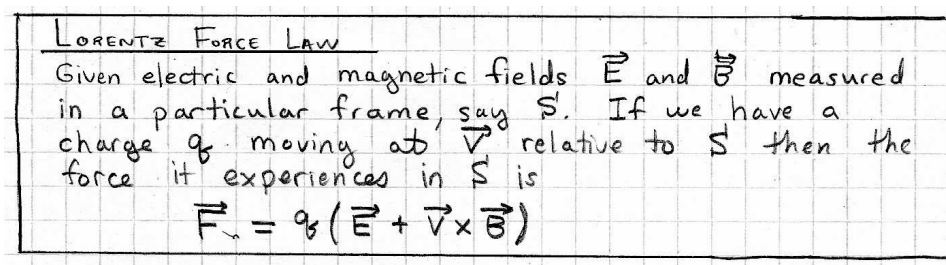 LORENTZ FORCE LAW
Given electric and magnetic fields E⃗ and B⃗ measured
in a particular frame, say S. If we have a
charge q moving at V⃗ relative to S then the
force it experiences in S is
F⃗ = q(E⃗ + V⃗ × B⃗)